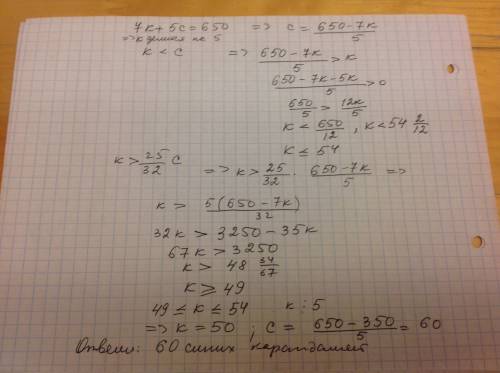 7к + 5с = 650 => с = (650 - 7к)/5
=> к делится на 5
к < с => (650 - 7к)/5 > к
(650 - 7к - 5к)/5 > 0
650/5 > 12к/5
к < 650/12 , к < 54 2/12
к ≤ 54
к > 25/32 с => к > 25/32 · (650 - 7к)/5 =>
к > 5(650 - 7к)/32
32к > 3250 - 35к
67к > 3250
к > 48 34/67
к ≥ 49
49 ≤ к ≤ 54 к ⋮ 5
=> к = 50 ; с = (650 - 350)/5 = 60
Ответ: 60 синих карандашей